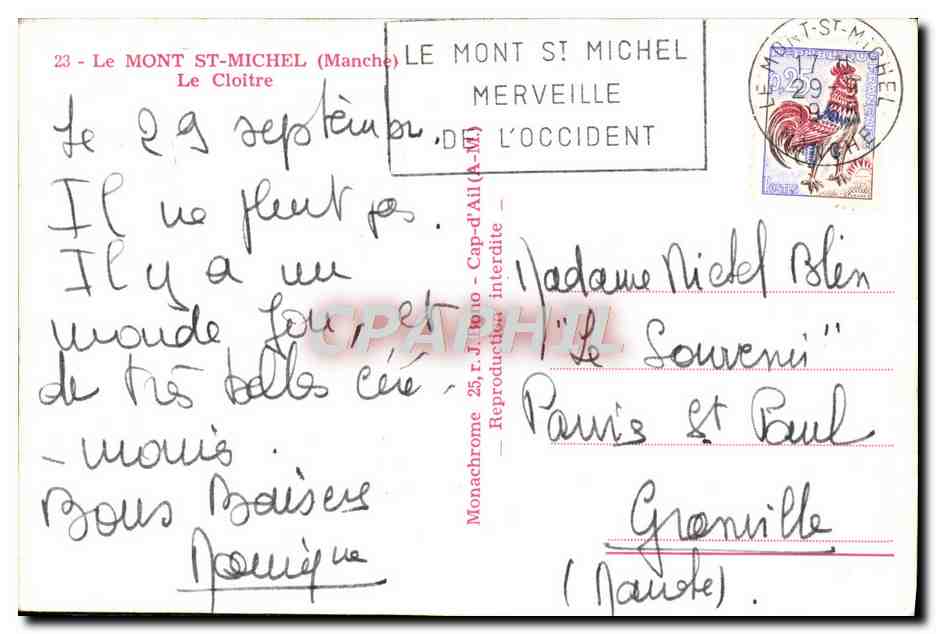 23 - Le MONT ST-MICHEL (Manche)
Le Cloître
LE MONT ST MICHEL
MERVEILLE
DE L'OCCIDENT
LE MONT-ST-MICHEL
MANCHE
29
0,25
POSTES
Le 29 septembr.
Il ne pleut pas.
Il y a un
monde fou, et
de très belles céré-
-monies.
Bons Baisers
Monachrome 25, r. J. Bono - Cap-d'Ail (A-M.)
— Reproduction interdite —
CPAPHIL
Madame Michel Blin
"Le Souvenir"
Parvis St Paul
Granville
(Manche).